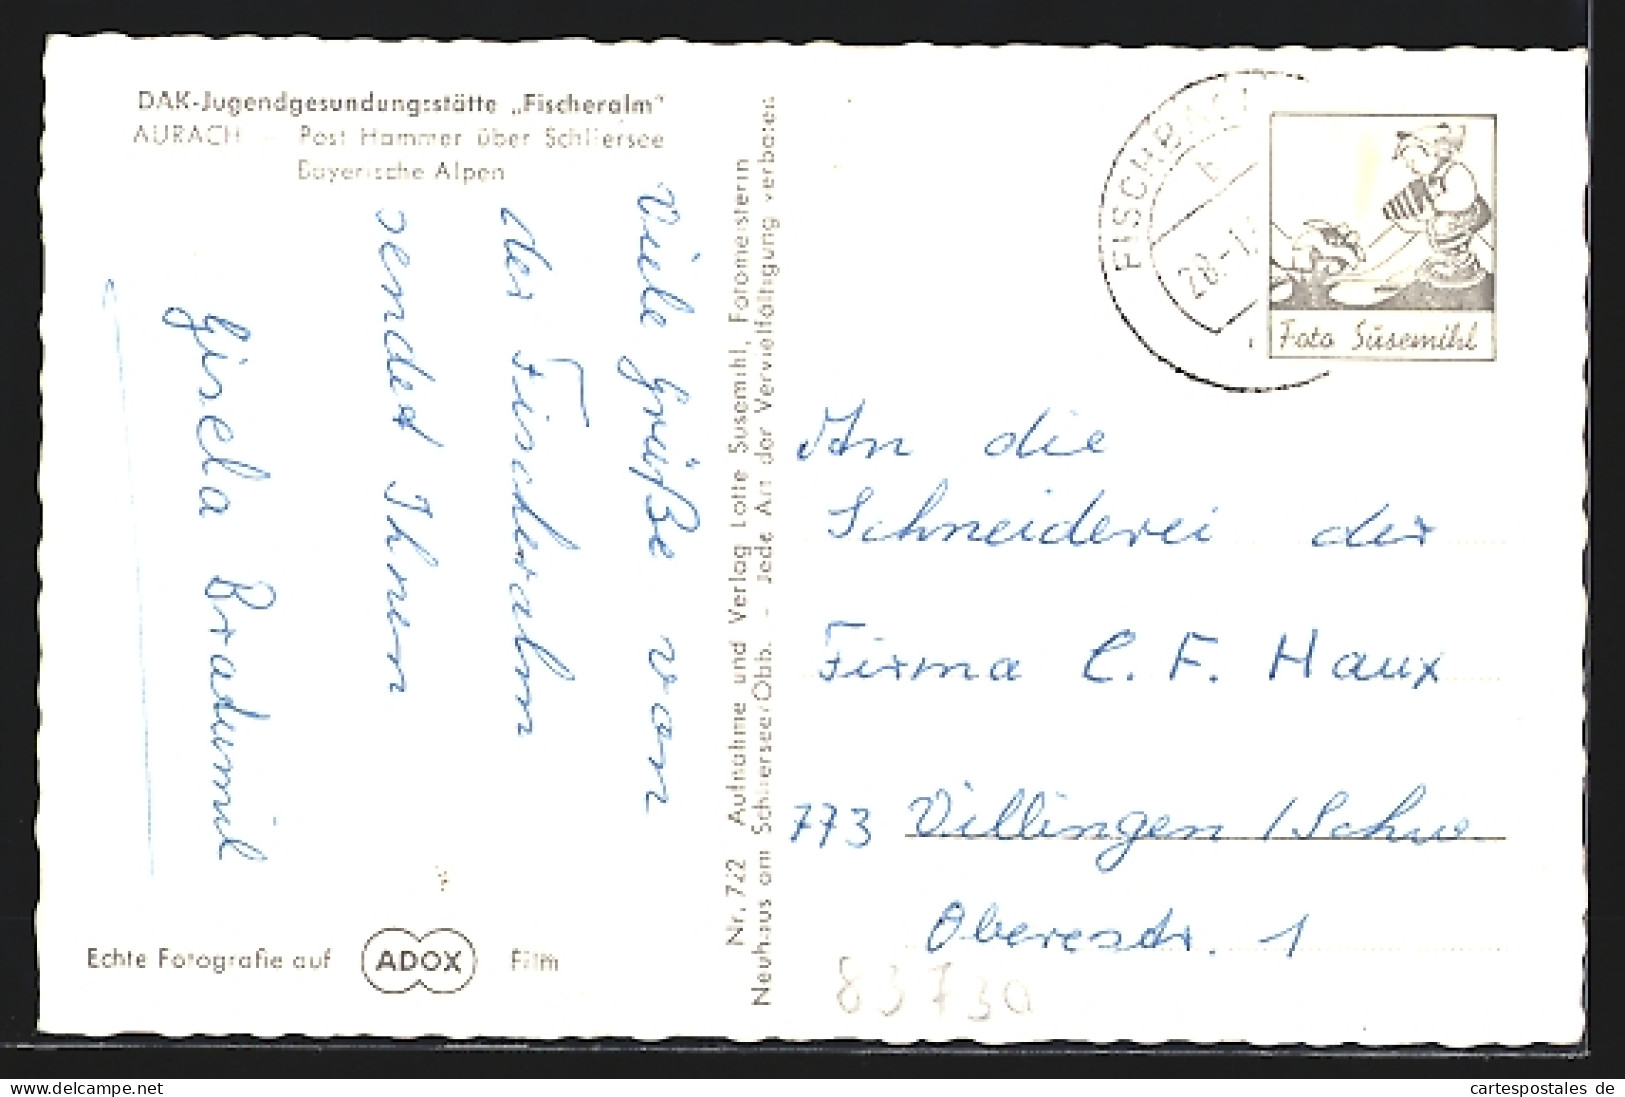 DAK-Jugendgesundungsstätte „Fischeralm"
AURACH – Post Hammer über Schliersee
Bayerische Alpen
Viele Grüße von
der Fischeralm
sendet Ihnen
Gisela
Echte Fotografie auf ADOX Film
Nr. 722 Aufnahme und Verlag Lotte Susemihl, Fotomeisterin
Neuhaus am Schliersee/Obb. - Jede Art der Vervielfältigung verboten
FISCHBACH
b
28.-1
Foto Susemihl
An die
Schneiderei der
Firma C. F. Haux
773 Villingen / Schw
Oberestr. 1
83730
delcampe.net
cartespostales de